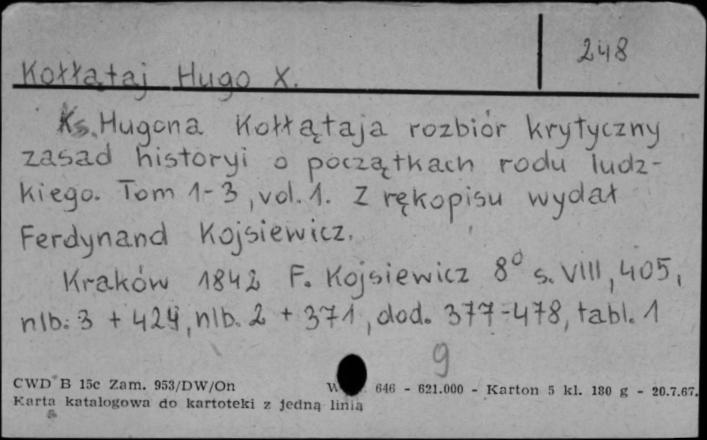 248
Kołłątaj Hugo X.
Ks. Hugona Kołłątaja rozbiór krytyczny
zasad historyi o początkach rodu ludz-
kiego. Tom 1-3, vol. 1. Z rękopisu wydał
Ferdynand Kojsiewicz.
Kraków 1842 F. Kojsiewicz 8° s. VIII, 405,
nlb. 3 + 424, nlb. 2 + 371, dod. 377-478, tabl. 1
9
CWD B 15c Zam. 953/DW/On 646 - 621.000 - Karton 5 kl. 180 g - 20.7.67.
Karta katalogowa do kartoteki z jedną linią